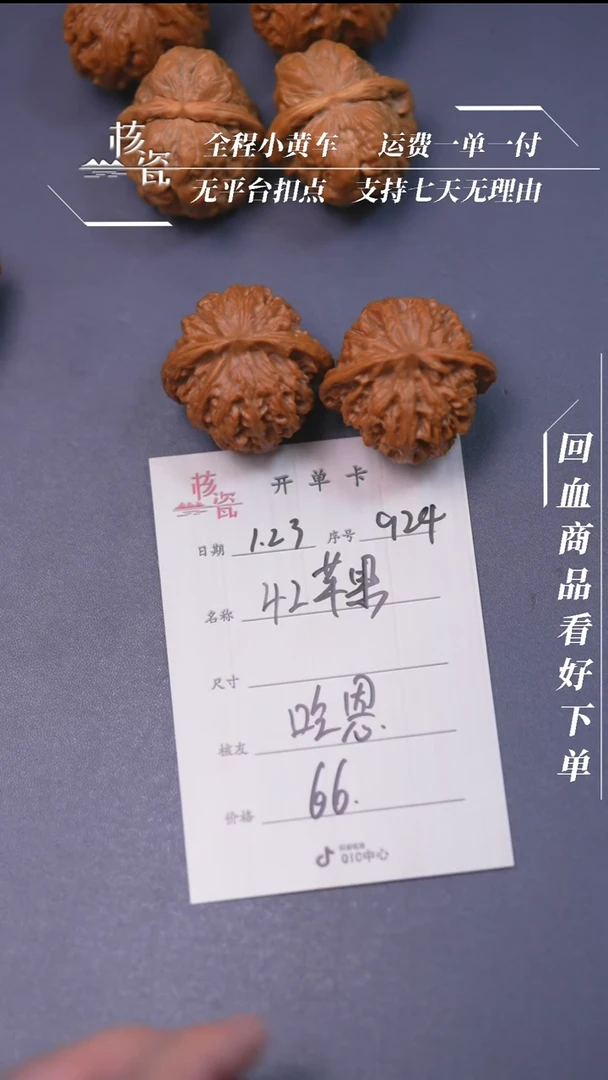 核瓷
全程小黄车 运费一单一付
无平台扣点 支持七天无理由
回血商品看好下单
核瓷 开单卡
日期 1.23 序号 924
名称 42苹果
尺寸
核友 哈恩.
价格 66.
QIC中心